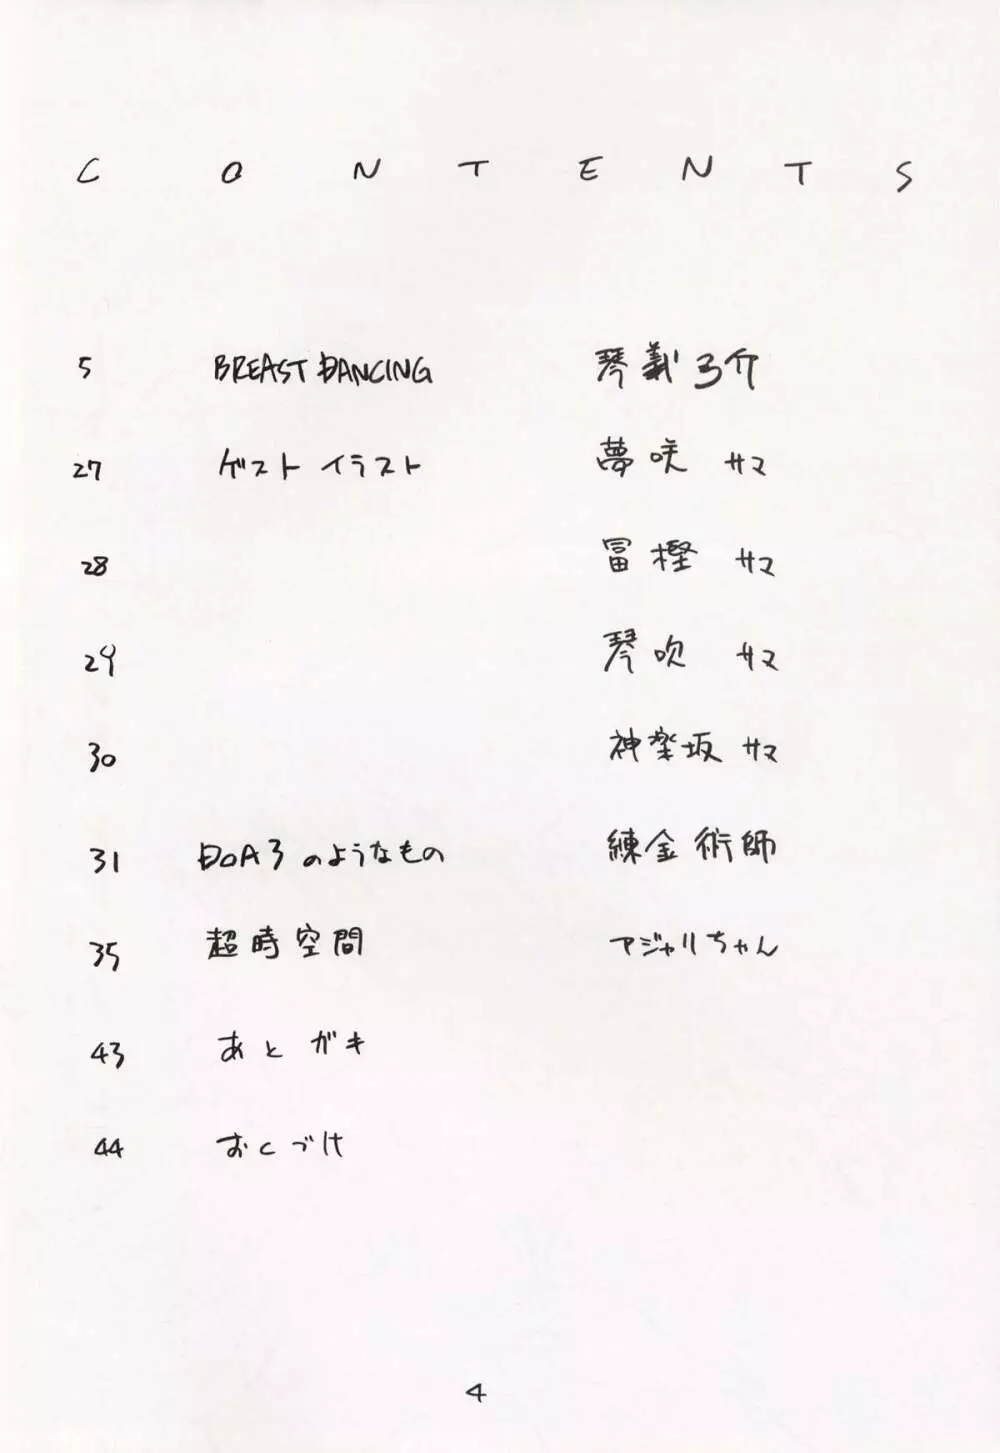 CONTENTS
5 BREAST DANCING 琴義弓介
27 ゲスト イラスト 夢咲 サマ
28 冨樫 サマ
29 琴吹 サマ
30 神楽坂 サマ
31 DOA3のようなもの 練金術師
35 超時空間 アジャリちゃん
43 あとガキ
44 おくづけ
4